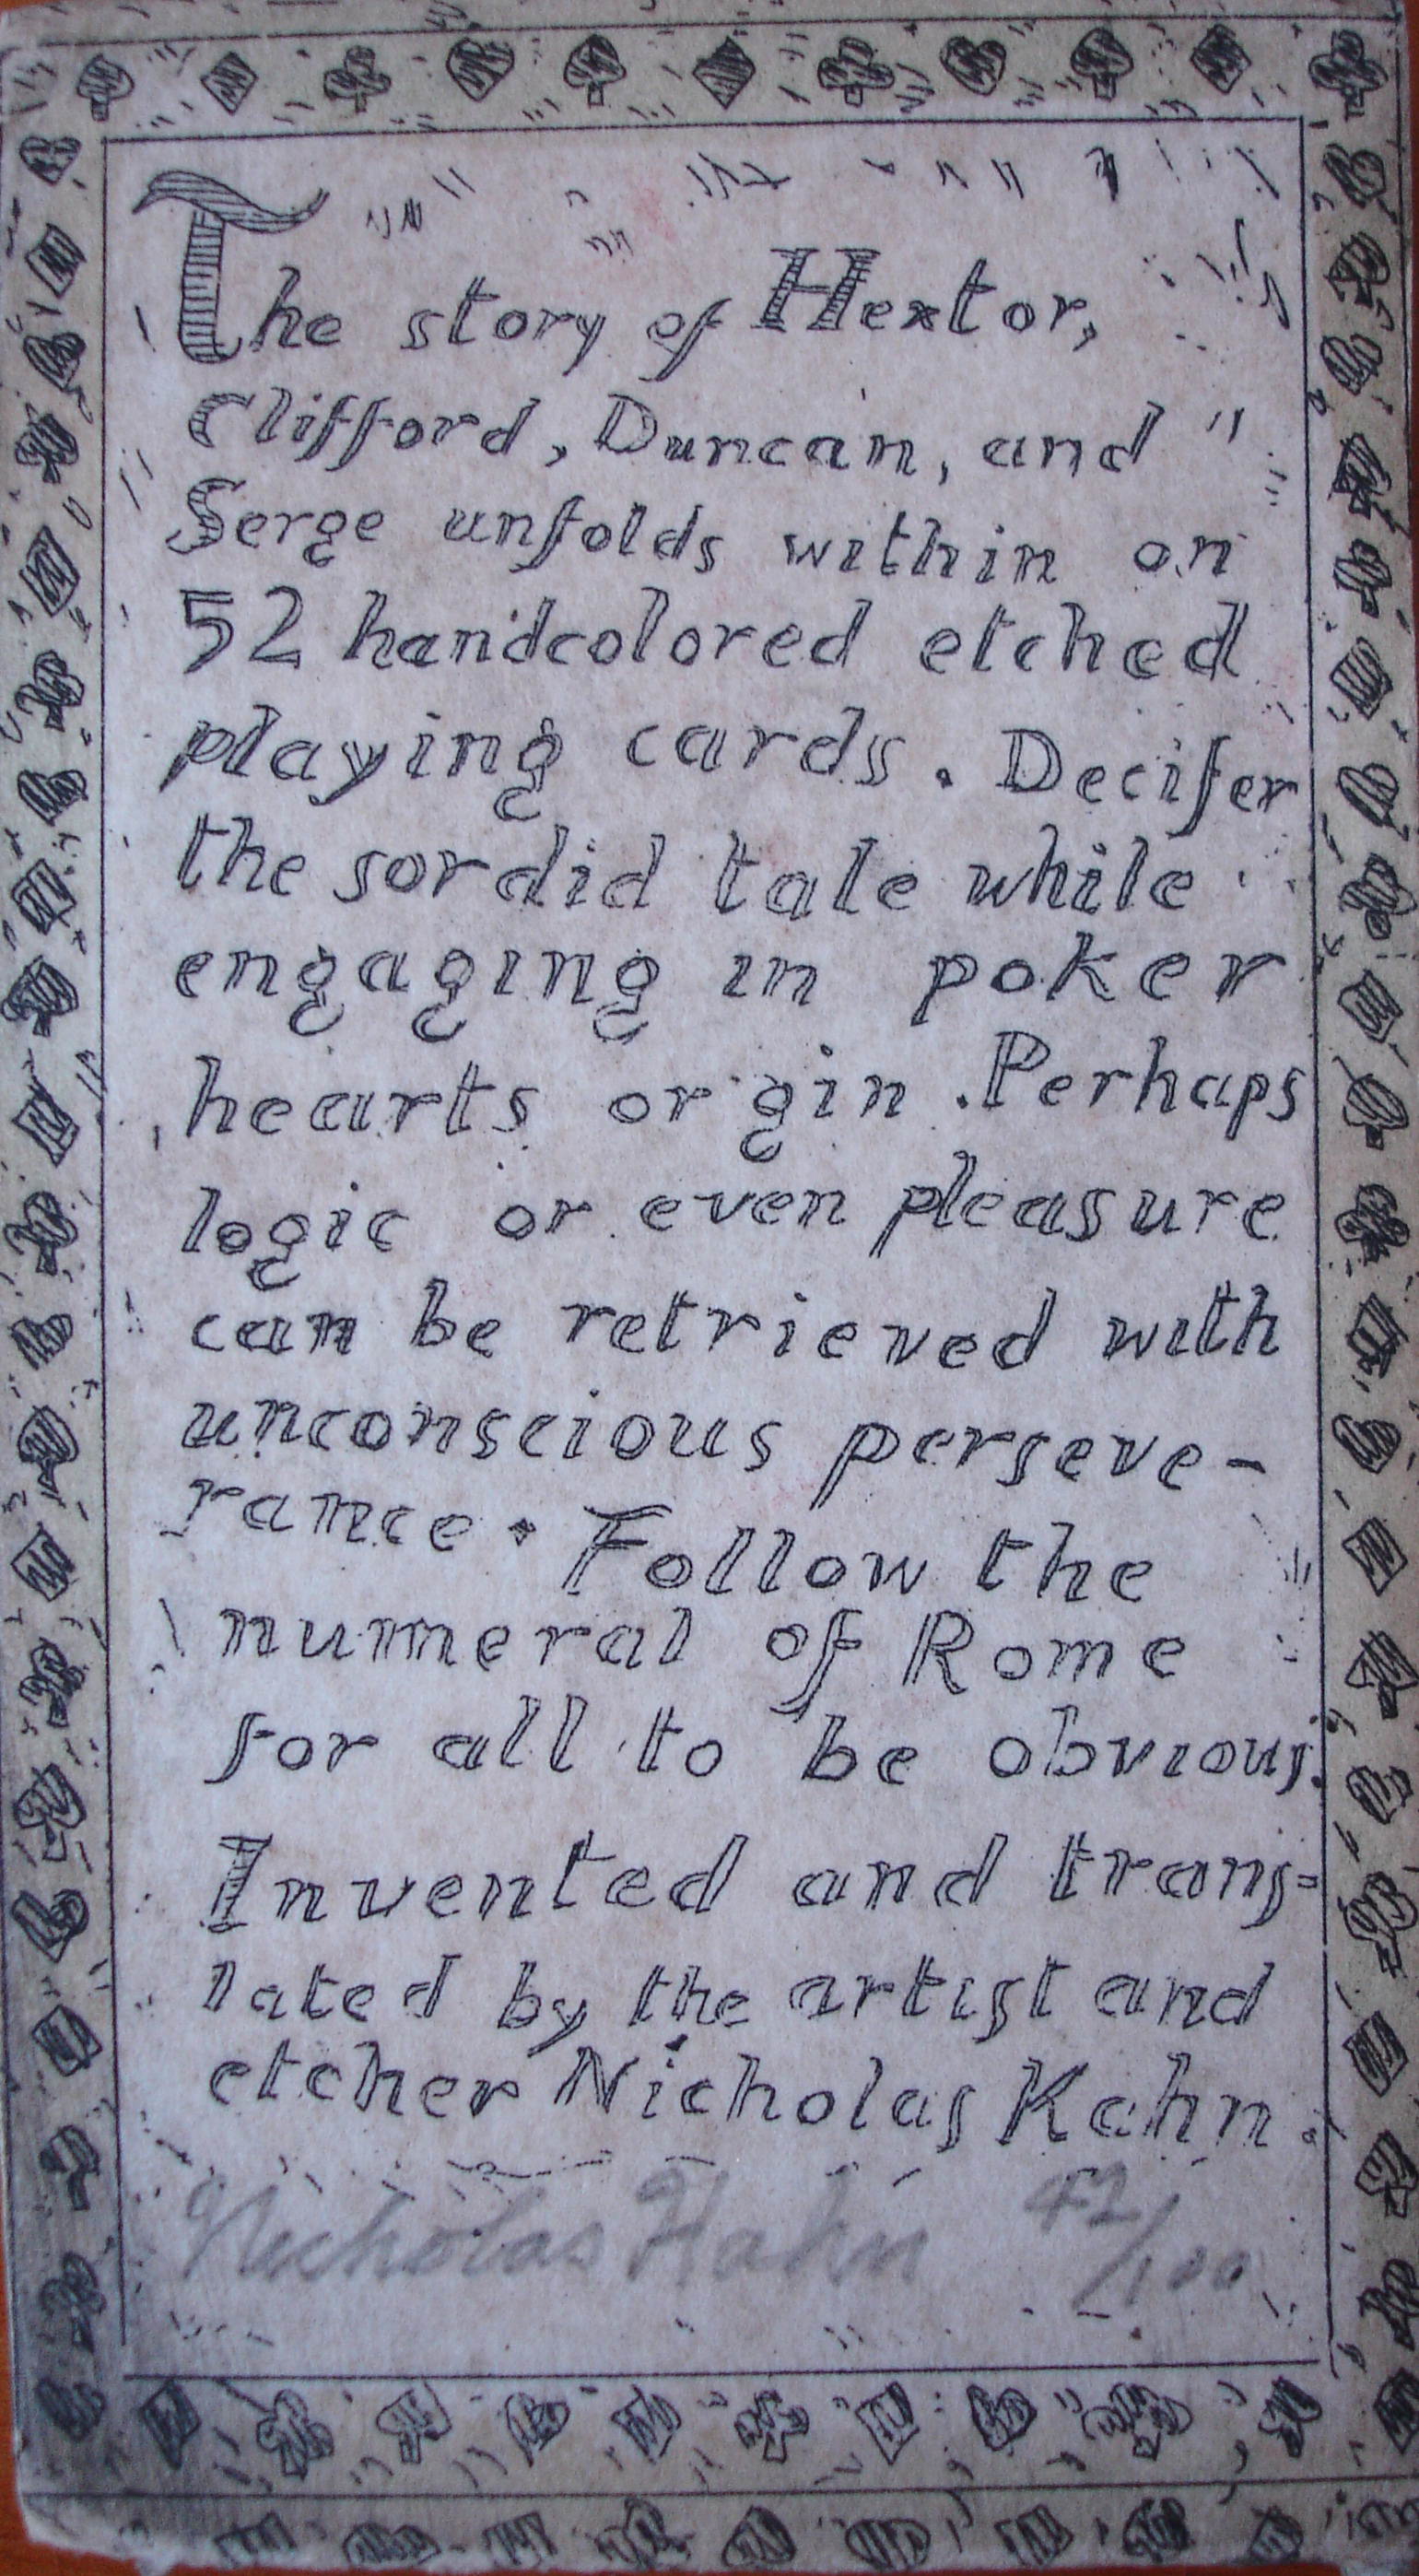 The story of Hextor,
Clifford, Duncan, and
Serge unfolds within on
52 handcolored etched
playing cards. Decifer
the sordid tale while
engaging in poker
hearts or gin. Perhaps
logic or even pleasure
can be retrieved with
unconscious perseve-
rance. Follow the
numeral of Rome
for all to be obvious.
Invented and trans=
lated by the artist and
etcher Nicholas Kahn.
Nicholas Kahn 42/100